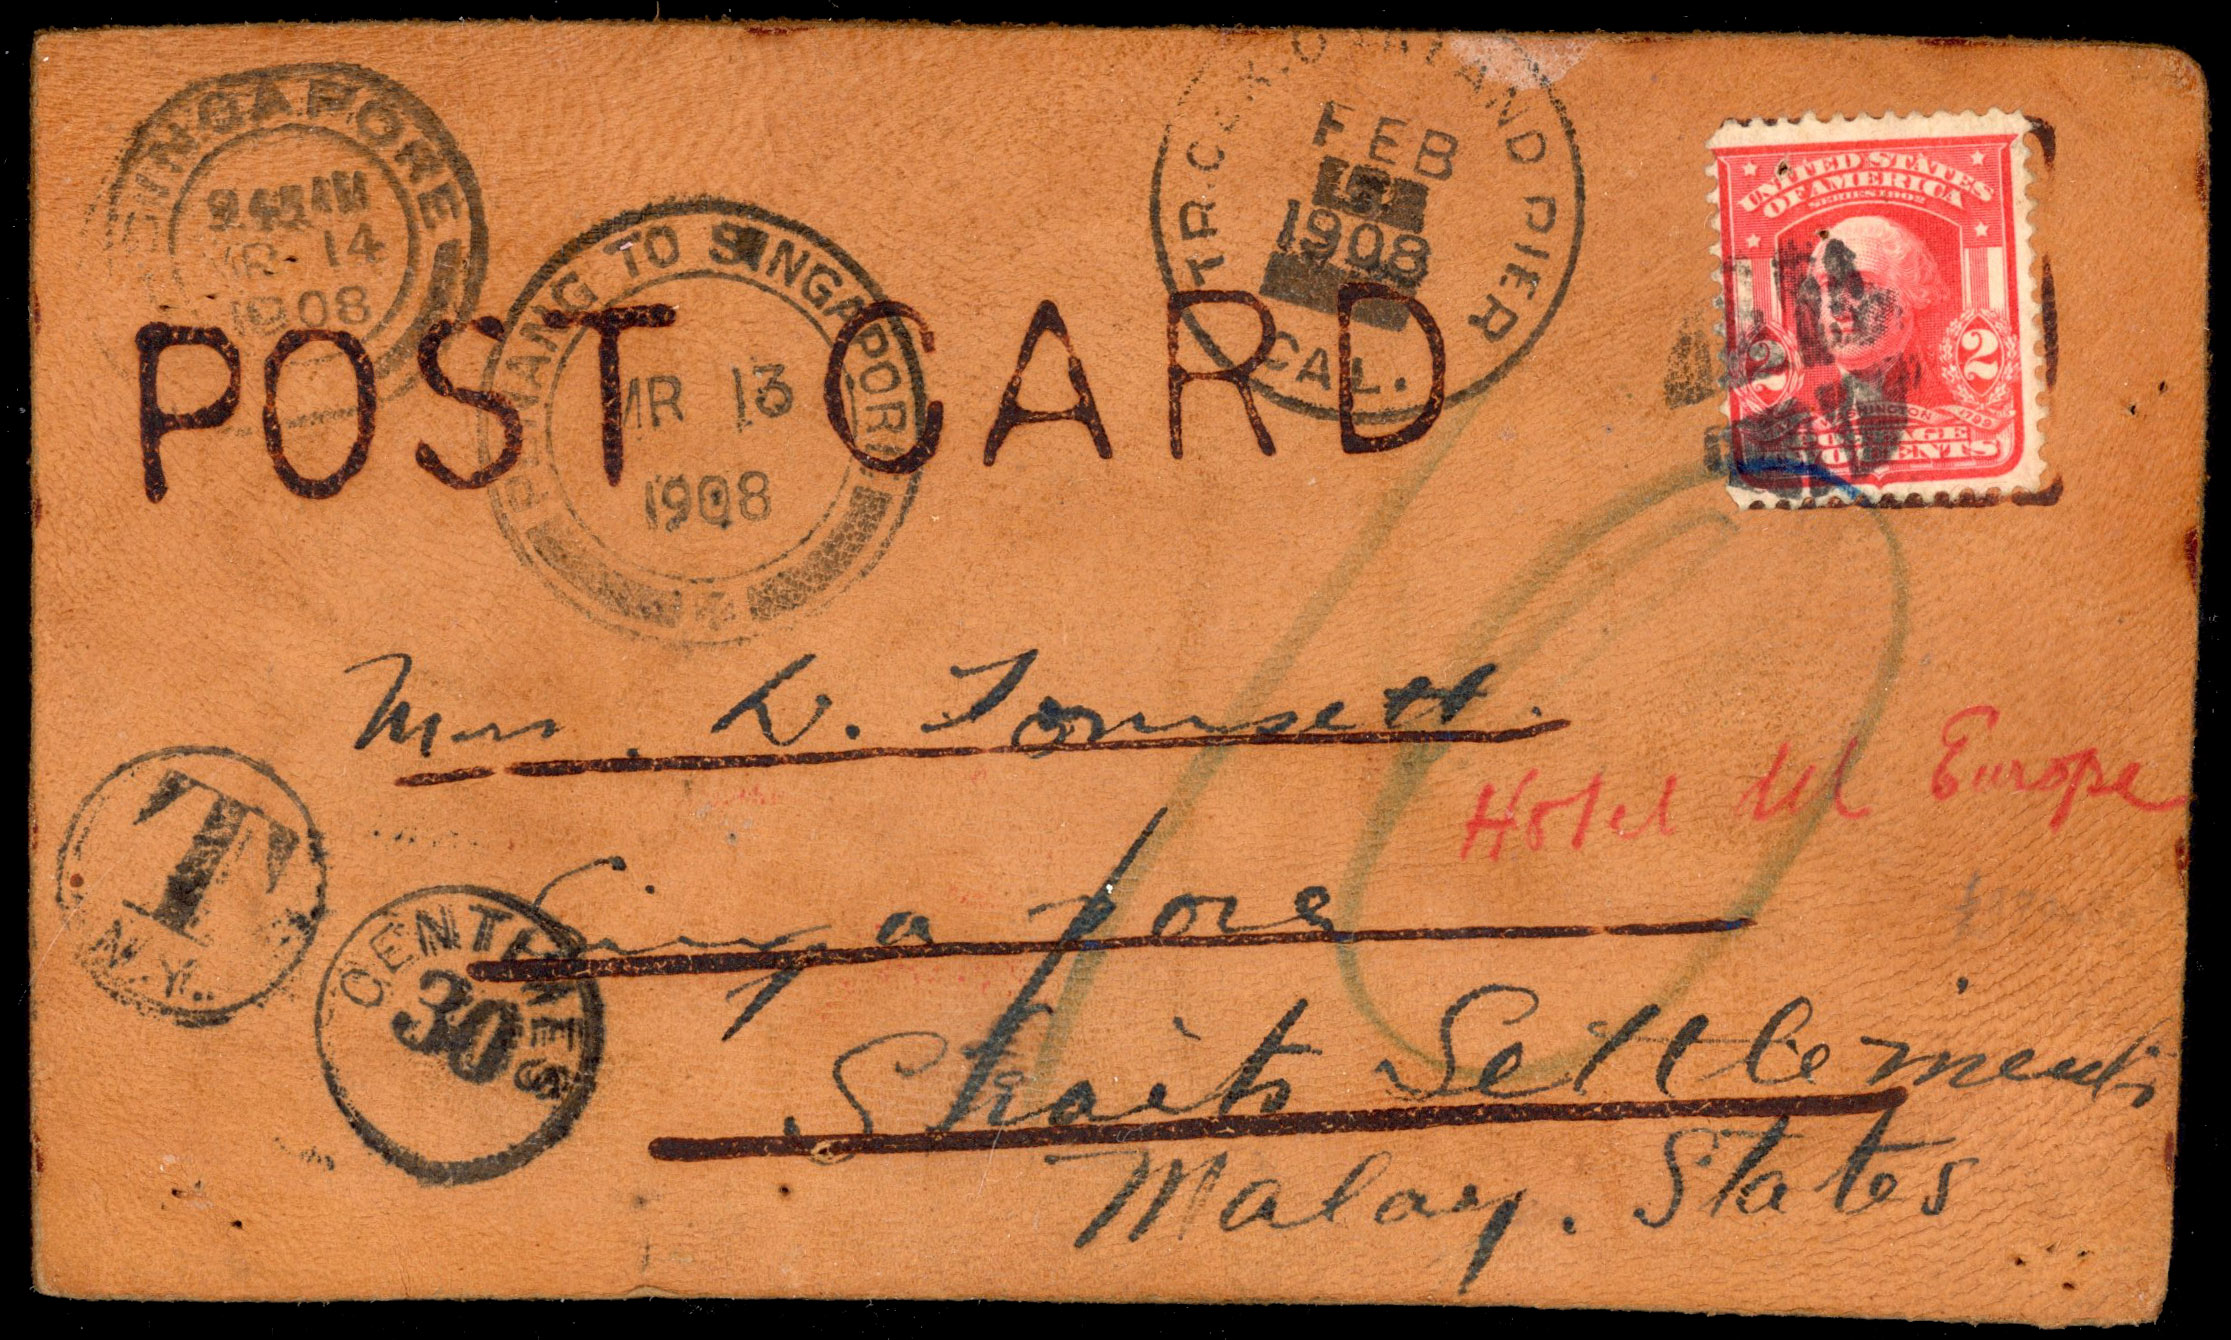 SINGAPORE
MR 14
1908
PENANG TO SINGAPORE
MR 13
1908
TR. CLK. OAKLAND PIER
FEB
1908
CAL.
UNITED STATES
OF AMERICA
SERIES 1902
2 2
WASHINGTON
POSTAGE
TWO CENTS
POST CARD
Mrs. D. Tomsett.
Hotel de Europe
Singapore
Straits Settlements
Malay. States
T
N.Y.
CENTIMES
30
10